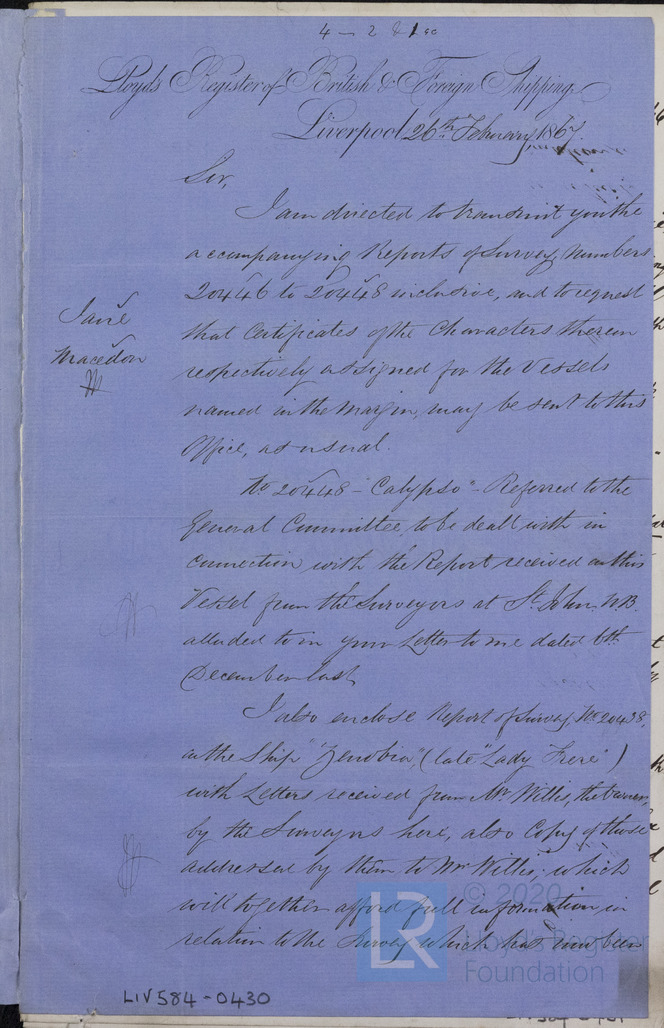 Lloyd's Register of British & Foreign Shipping.
Liverpool 26th February 1867.
Sir,
I am directed to transmit you the
accompanying Reports of Survey, Numbers
20446 to 20448 inclusive, and to request
that Certificates of the Characters therein
respectively assigned for the Vessels
named in the Margin, may be sent to this
Office, as usual.
Macedon
No 20448 - "Calypso" - Referred to the
General Committee, to be dealt with in
connection with the Report received on this
Vessel from the Surveyors at St. John. N.B.
alluded to in your Letter to me dated 6th
December last
I also enclose Report of Survey, No 20438,
on the Ship "Zenobia", (late "Lady Frere")
with Letters received from Mr. Willis, the Owner,
by the Surveyors here, also Copy of those
addressed by them to Mr Willis; which
will together afford full information, in
relation to the Survey which has now been
LR © 2020
Lloyd's Register
Foundation
LIV584-0430